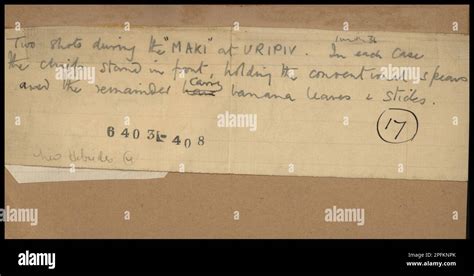 Two shots during the "MAKI" at URIPIV. In each case
the chiefs stand in front, holding the conventional spears
and the remainder carry banana leaves & sticks.
17
6403-408
New Hebrides
alamy
Image ID: 2PFKNPK
www.alamy.com